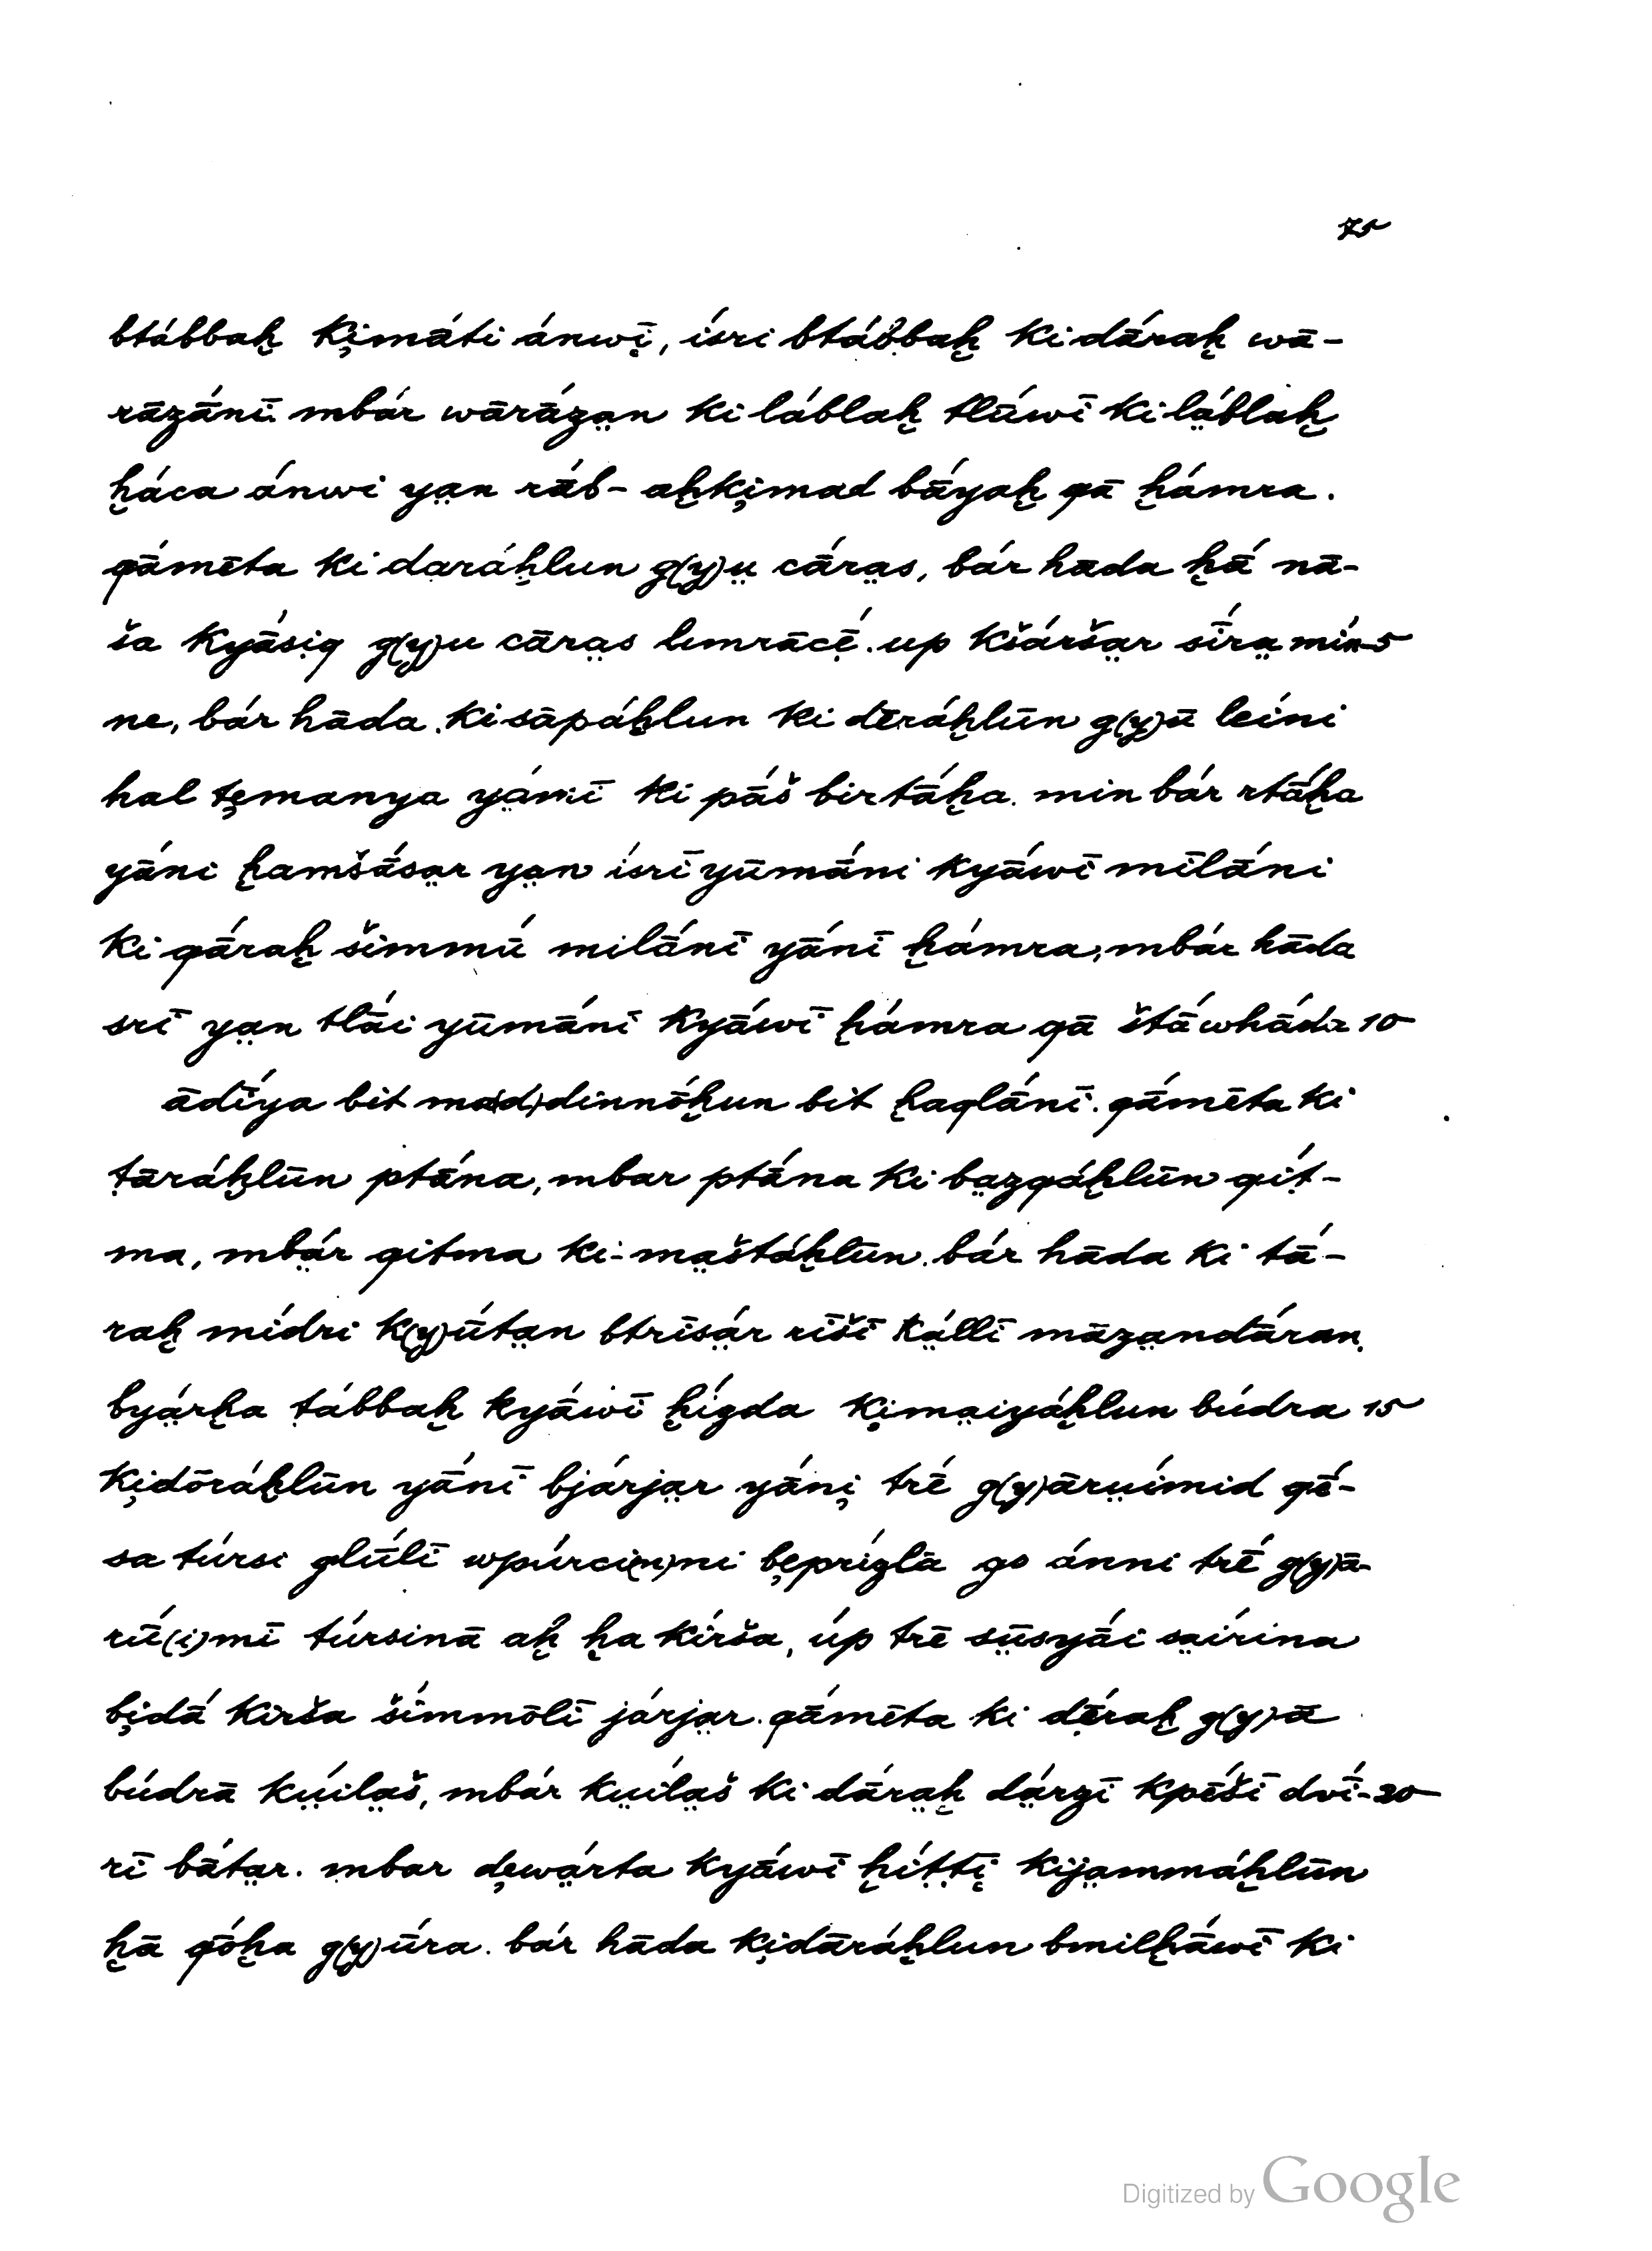 75
btábbaḫ ki̧māti ánwī̧, ísri btábbaḫ ki dā́raḫ wā-
rāzā́nī. mbár wārā́za̤n ki láblaḫ tlū́wī ki lá̤blaḫ
ḫáca ánwi ya̤n rāb- aḫki̧mad bā́yaḫ qā ḫámra.
qā́mēta ki daráḫlun g(y)ṳ cā́ra̤s, bár hāda ḫā́ nā-
ša kyā́siq g(y)u cāra̤s lımrācḗ. up kšárša̤r sī́ra̤ mín- 5
ne, bár hāda ki sāpáḫlun ki dēráḫlūn g(y)ū leíni
hal ţemanya yá̤mī ki pā́š birtā́ḫa. min bár rtā́ḫa
yáni ḫamšā́sa̤r ya̤n ísrī yūmā́ni kyā́wī mīlā́ni
ki qā́raḫ šimmū́ milā́nī yā́nī ḫámra, mbár hāda
srī ya̤n tlāi yūmā́nī kyā́wī ḫámra qā štā́whāda 10
ādī́ya bit ma(d)dinnṓḫun bit ḫaqlā́nī. qā́mēta ki
ṭāráḫlūn ptā́na, mbar ptā́na ki ba̤zqáḫlūn qíṭ-
ma, mbá̤r qitma ki-ma̤štáḫlūn. bár hāda ki tā́-
raḫ mídri k(y)ū́ta̤n btrīsá̤r rīšī ká̤llī māza̤ndā́ran.
byá̤rḫa ṭábbaḫ kyā́wī ḫígda ki̧ma̤iyáḫlun búdra 15
ki̧dōráḫlūn yā́nī bjárja̤r yā́ni̧ trē g(y)ārṳímid qē-
sa túrsi glū́lī wpúrci(n)ni bȩprízlā go ánni trē g(y)ā-
rū́(i)mī túrsinā aḫ ḫa kírša, úp trē sṳsyā́i sa̤írina
bi̧dā́ kírša šímmōlī járja̤r. qā́mēta ki dḗraḫ g(y)ā
búdrā kṳ́ila̤š, mbár kṳíla̤š ki dāra̤ḫ dá̤rzī kpēšī dvī́- 20
rī bā́ta̤r. mbar dȩwá̤rta kyā́wī ḫíṭṭi̧ kija̤mmáḫlūn
ḫā qṓḫa g(y)ū́ra. bár hāda ki̧dāráḫlun bmilḫā́wī ki
Digitized by Google